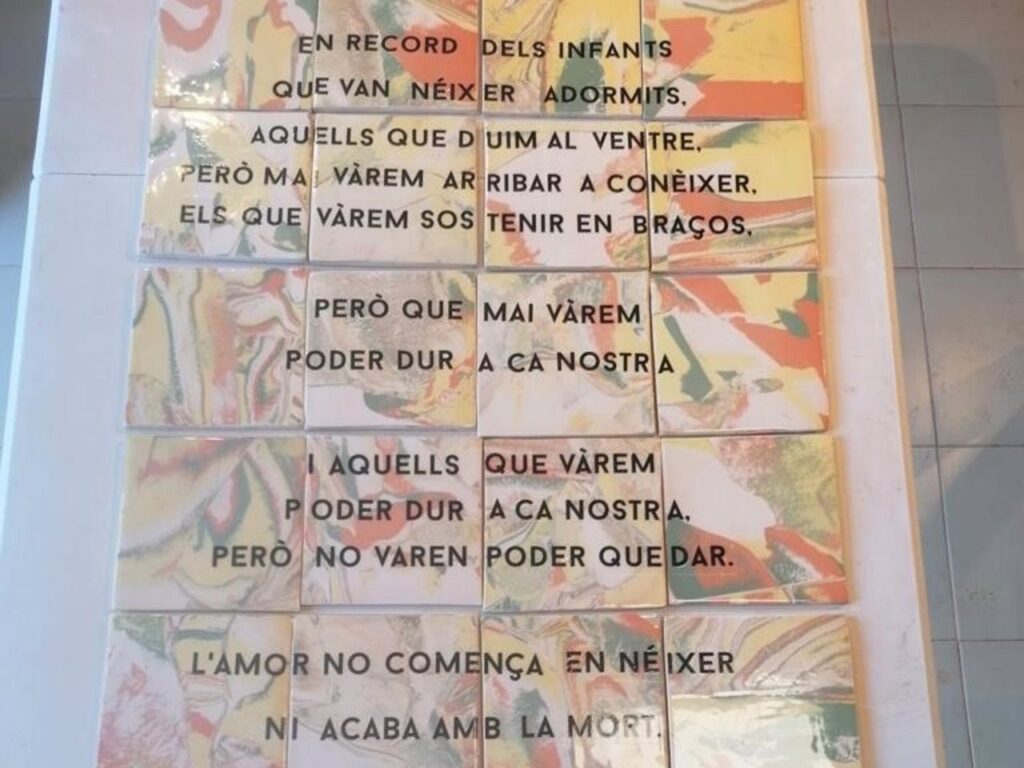 EN RECORD DELS INFANTS
QUE VAN NÉIXER ADORMITS,
AQUELLS QUE DUIM AL VENTRE,
PERÒ MAI VÀREM ARRIBAR A CONÈIXER,
ELS QUE VÀREM SOSTENIR EN BRAÇOS,
PERÒ QUE MAI VÀREM
PODER DUR A CA NOSTRA
I AQUELLS QUE VÀREM
PODER DUR A CA NOSTRA,
PERÒ NO VAREN PODER QUEDAR.
L'AMOR NO COMENÇA EN NÉIXER
NI ACABA AMB LA MORT.